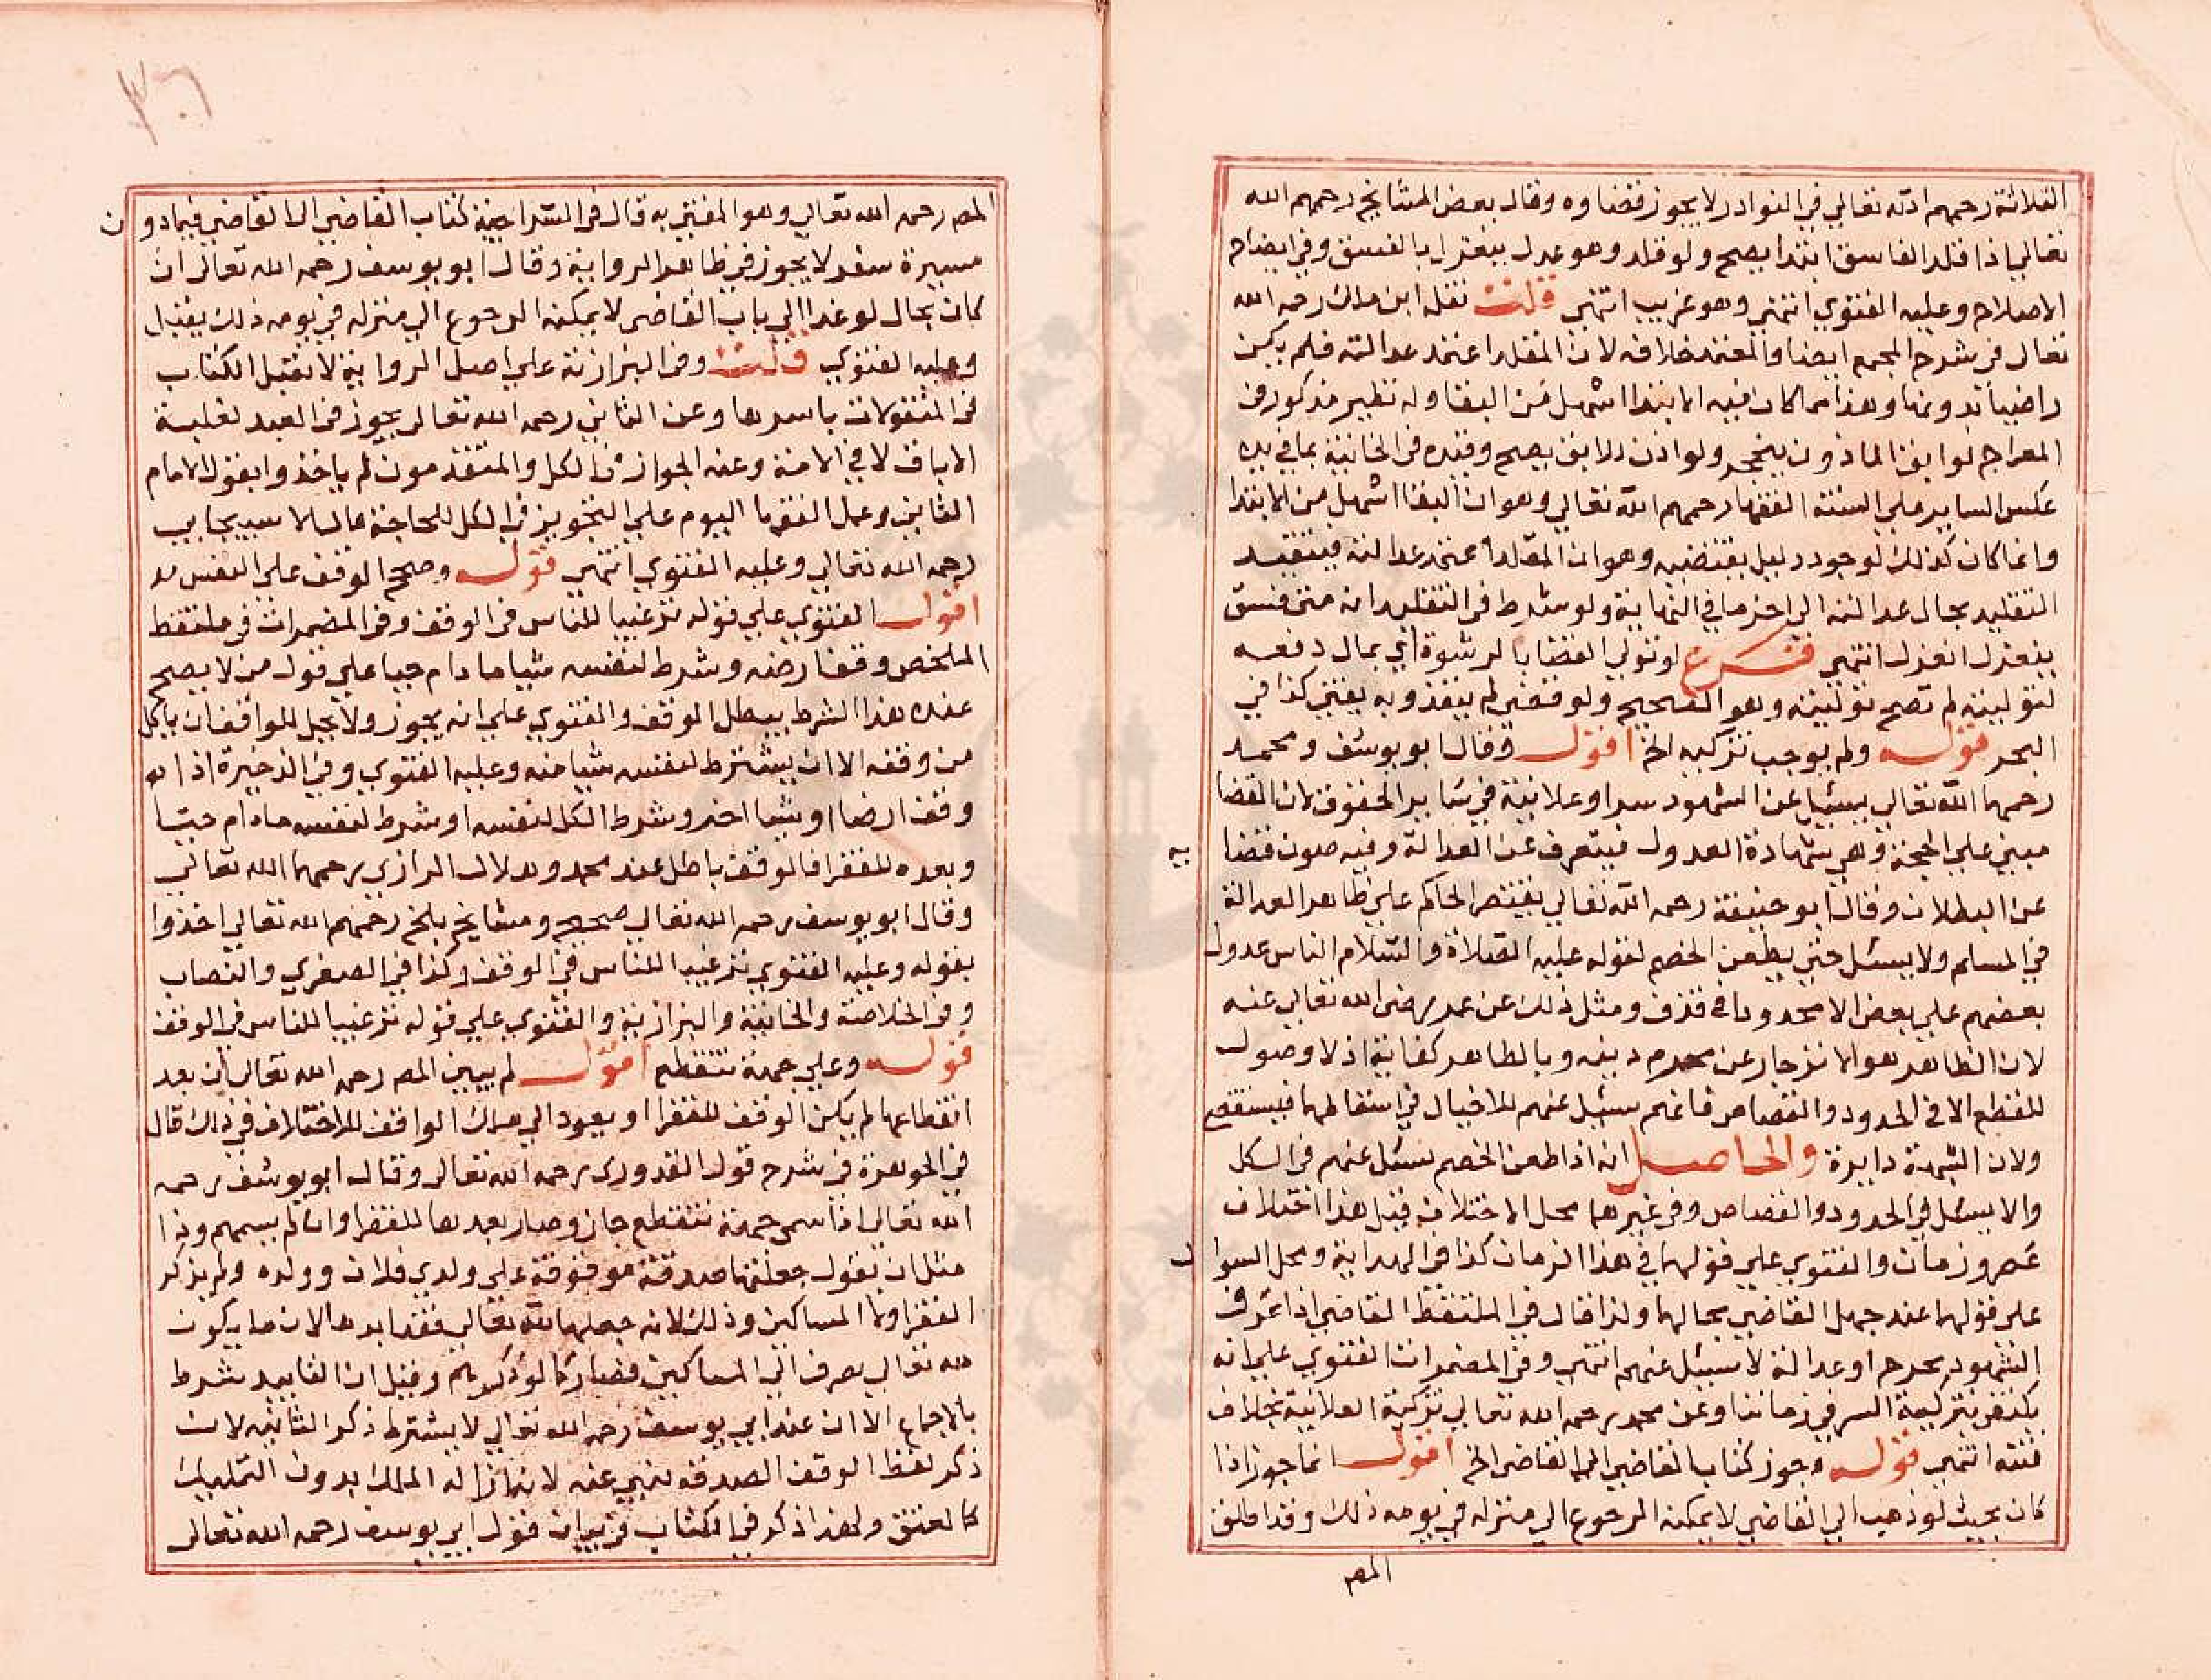 الثلاثة رحمهم الله تعالي في النوادر لا يجوز قضاوه وقال بعض المشايخ رحمهم الله
تعالي اذا قلد الفاسق ابتدا يصح ولو قلد وهو عدل ينعزل بالفسق وفي ايضاح
الاصلاح وعليه الفتوي انتهي وهو غريب انتهي قلت نقله ابن ملك رحمه الله
تعالي في شرح المجمع ايضا والمعتمد خلافه لان المقلد اعتمد عدالته فلم يكن
راضيا بدونها وهذا مما كان فيه الابتدا اسهل من البقا وله نظير مذكور في
المعراج لو ابق الماذون ينحجر ولو اذن للابق يصح وقيده في الخانية بما في يده
عكس الساير علي السنة الفقها رحمهم الله تعالي وهو ان البقا اسهل من الابتدا
وانما كان كذلك لوجود دليل يقتضيه وهو ان المقلد اعتمد عدالته فيتقيد
التقليد بحال عدالته الي اخر ما في النهاية ولو شرط في التقليد انه متي فسق
ينعزل انعزل انتهي فرع لو تولي القضا بالرشوة اي بمال دفعه
لتوليته لم تصح توليته وهو الصحيح ولو قضي لم ينفذ وبه يفتي كذا في
البحر قوله ولم يوجب تزكيه الخ اقول وقال ابو يوسف ومحمد
رحمهما الله تعالي يسئل عن الشهود سرا وعلانية في ساير الحقوق لان القضا
مبني علي الحجة وهي شهادة العدول فيتعرف عن العدالة وفيه صون قضا
يه
عن البطلان وقال ابو حنيفة رحمه الله تعالي يقتصر الحاكم علي ظاهر العدالة
في المسلم ولا يسئل حتي يطعن الخصم لقوله عليه الصلاة والسلام الناس عدول
بعضهم علي بعض الا محدودا في قذف ومثل ذلك عن عمر رضي الله تعالي عنه
لان الظاهر هو الانزجار عن محرم دينه وبالظاهر كفاية اذ لا وصول
للقطع الا في الحدود والقصاص فانهم سئل عنهم للاحتيال في اسقاطها فيستقصي
ولان الشبهة دايرة والحاصل انه اذا طعن الخصم يسئل عنهم في الكل
والا يسئل في الحدود والقصاص وفي غيرهما محل الاختلاف قيل هذا اختلاف
عصر وزمان والفتوي علي قولهما في هذا الزمان كذا في الهداية ومحل السوا
ل
علي قولهما عند جهل القاضي بحالهما ولذا قال في الملتقط القاضي اذا عرف
الشهود بجرح او عدالة لا يسئل عنهم انتهي وفي المضمرات الفتوي علي انه
يكتفي بتزكية السر في زماننا وعن محمد رحمه الله تعالي تزكية العلانية بخلاف
فتنة انتهي قوله وجوز كتاب القاضي الي القاضي الخ اقول انما جوز اذا
كان بحيث لو ذهب الي القاضي لا يمكنه الرجوع الي منزله في يومه ذلك وقد اطلق
المص
٣٠٦
المص رحمه الله تعالي وهو المفتي به قال في السراجية كتاب القاضي الي القاضي فيما دون
مسيرة سفر لا يجوز في ظاهر الرواية وقال ابو يوسف رحمه الله تعالي ان
كان بحال لو غدا الي باب القاضي لا يمكنه الرجوع الي منزله في يومه ذلك يقبل
وعليه الفتوي قلت وفي البزازية علي اصل الرواية لا يقبل الكتاب
في المنقولات باسرها وعن الثاني رحمه الله تعالي يجوز في العبد لغلبة
الاباق لا في الامة وعنه الجواز في الكل والمتقدمون لم ياخذوا بقول الامام
الثاني وعمل الفقها اليوم علي التجويز في الكل للحاجة قال الاسبيجابي
رحمه الله تعالي وعليه الفتوي انتهي قوله وصحح الوقف علي النفس
اقول الفتوي علي قوله ترغيبا للناس في الوقف وفي المضمرات في ملتقط
الملخص وقف ارضه وشرط لنفسه شيا ما دام حيا علي قول من لا يصح
عنده هذا الشرط يبطل الوقف والفتوي علي انه يجوز ولا يحل للواقف ان ياكل
من وقفه الا ان يشترط لنفسه شيا منه وعليه الفتوي وفي الذخيرة اذا
وقف ارضا او شيا اخر وشرط الكل لنفسه او شرط لنفسه ما دام حيا
وبعده للفقرا فالوقف باطل عند محمد وهلال الرازي رحمهما الله تعالي
وقال ابو يوسف رحمه الله تعالي صحيح ومشايخ بلخ رحمهم الله تعالي اخذوا
بقوله وعليه الفتوي ترغيبا للناس في الوقف وكذا في الصغري والنصاب
وفي الخلاصة والخانية والبزازية والفتوي علي قوله ترغيبا للناس في الوقف
قوله وعلي جهة تنقطع اقول لم يبين المص رحمه الله تعالي ان بعد
انقطاعها لم يكن الوقف للفقرا او يعود الي ملك الواقف للاختلاف في ذلك قال
في الجوهرة في شرح قول القدوري رحمه الله تعالي وقال ابو يوسف رحمه
الله تعالي اذا سمي جهة تنقطع جاز وصار بعدها للفقرا وان لم يسمهم وذا
مثل ان يقول جعلتها صدقة موقوفة علي ولدي فلان وولده ولم يذكر
الفقرا ولا المساكين وذلك لانه جعلها لله تعالي فقد ابدها لان ما يكون
لله تعالي يصرف الي المساكين فصار كما لو ذكرهم وقيل ان التابيد شرط
بالاجماع الا ان عند ابي يوسف رحمه الله تعالي لا يشترط ذكر التابيد لان
ذكر لفظ الوقف الصدقة تنبي عنه لانها ازالة الملك بدون التمليك
كالعتق ولهذا ذكر في الكتاب في بيان قول ابي يوسف رحمه الله تعالي